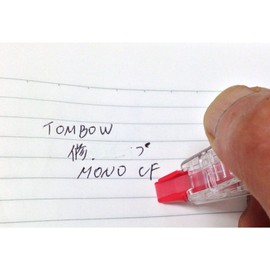 TOMBOW
MONO CF